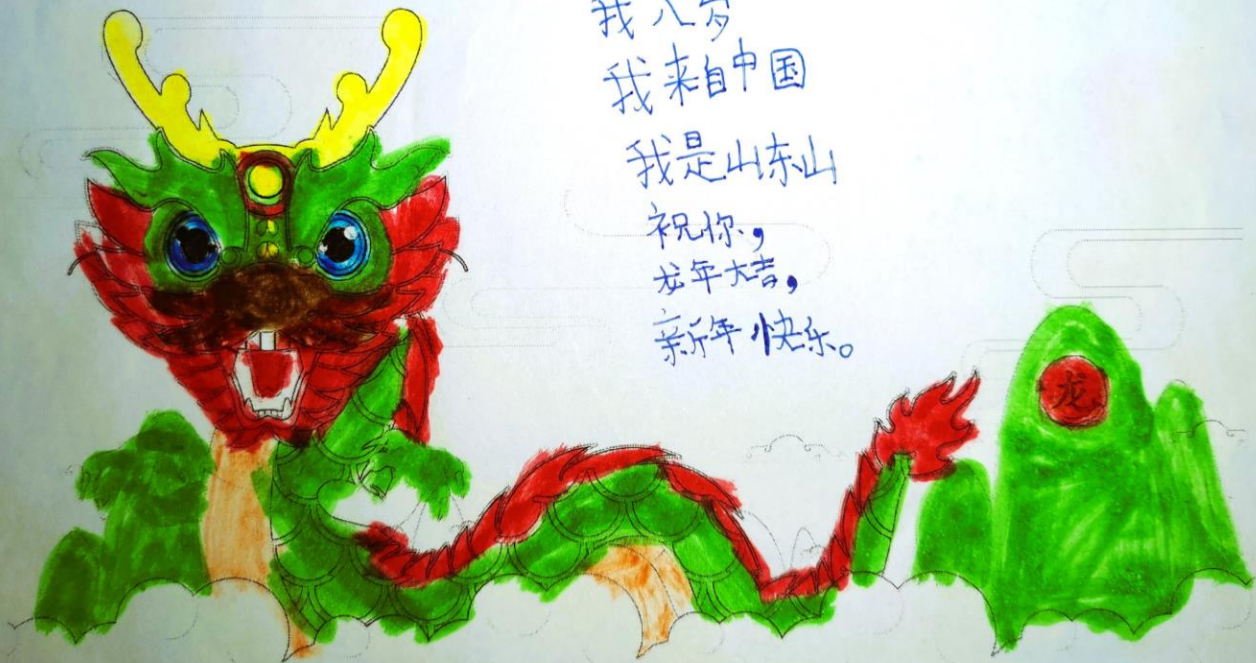 我八岁
我来自中国
我是山东山
祝你，
龙年大吉，
新年快乐。
龙